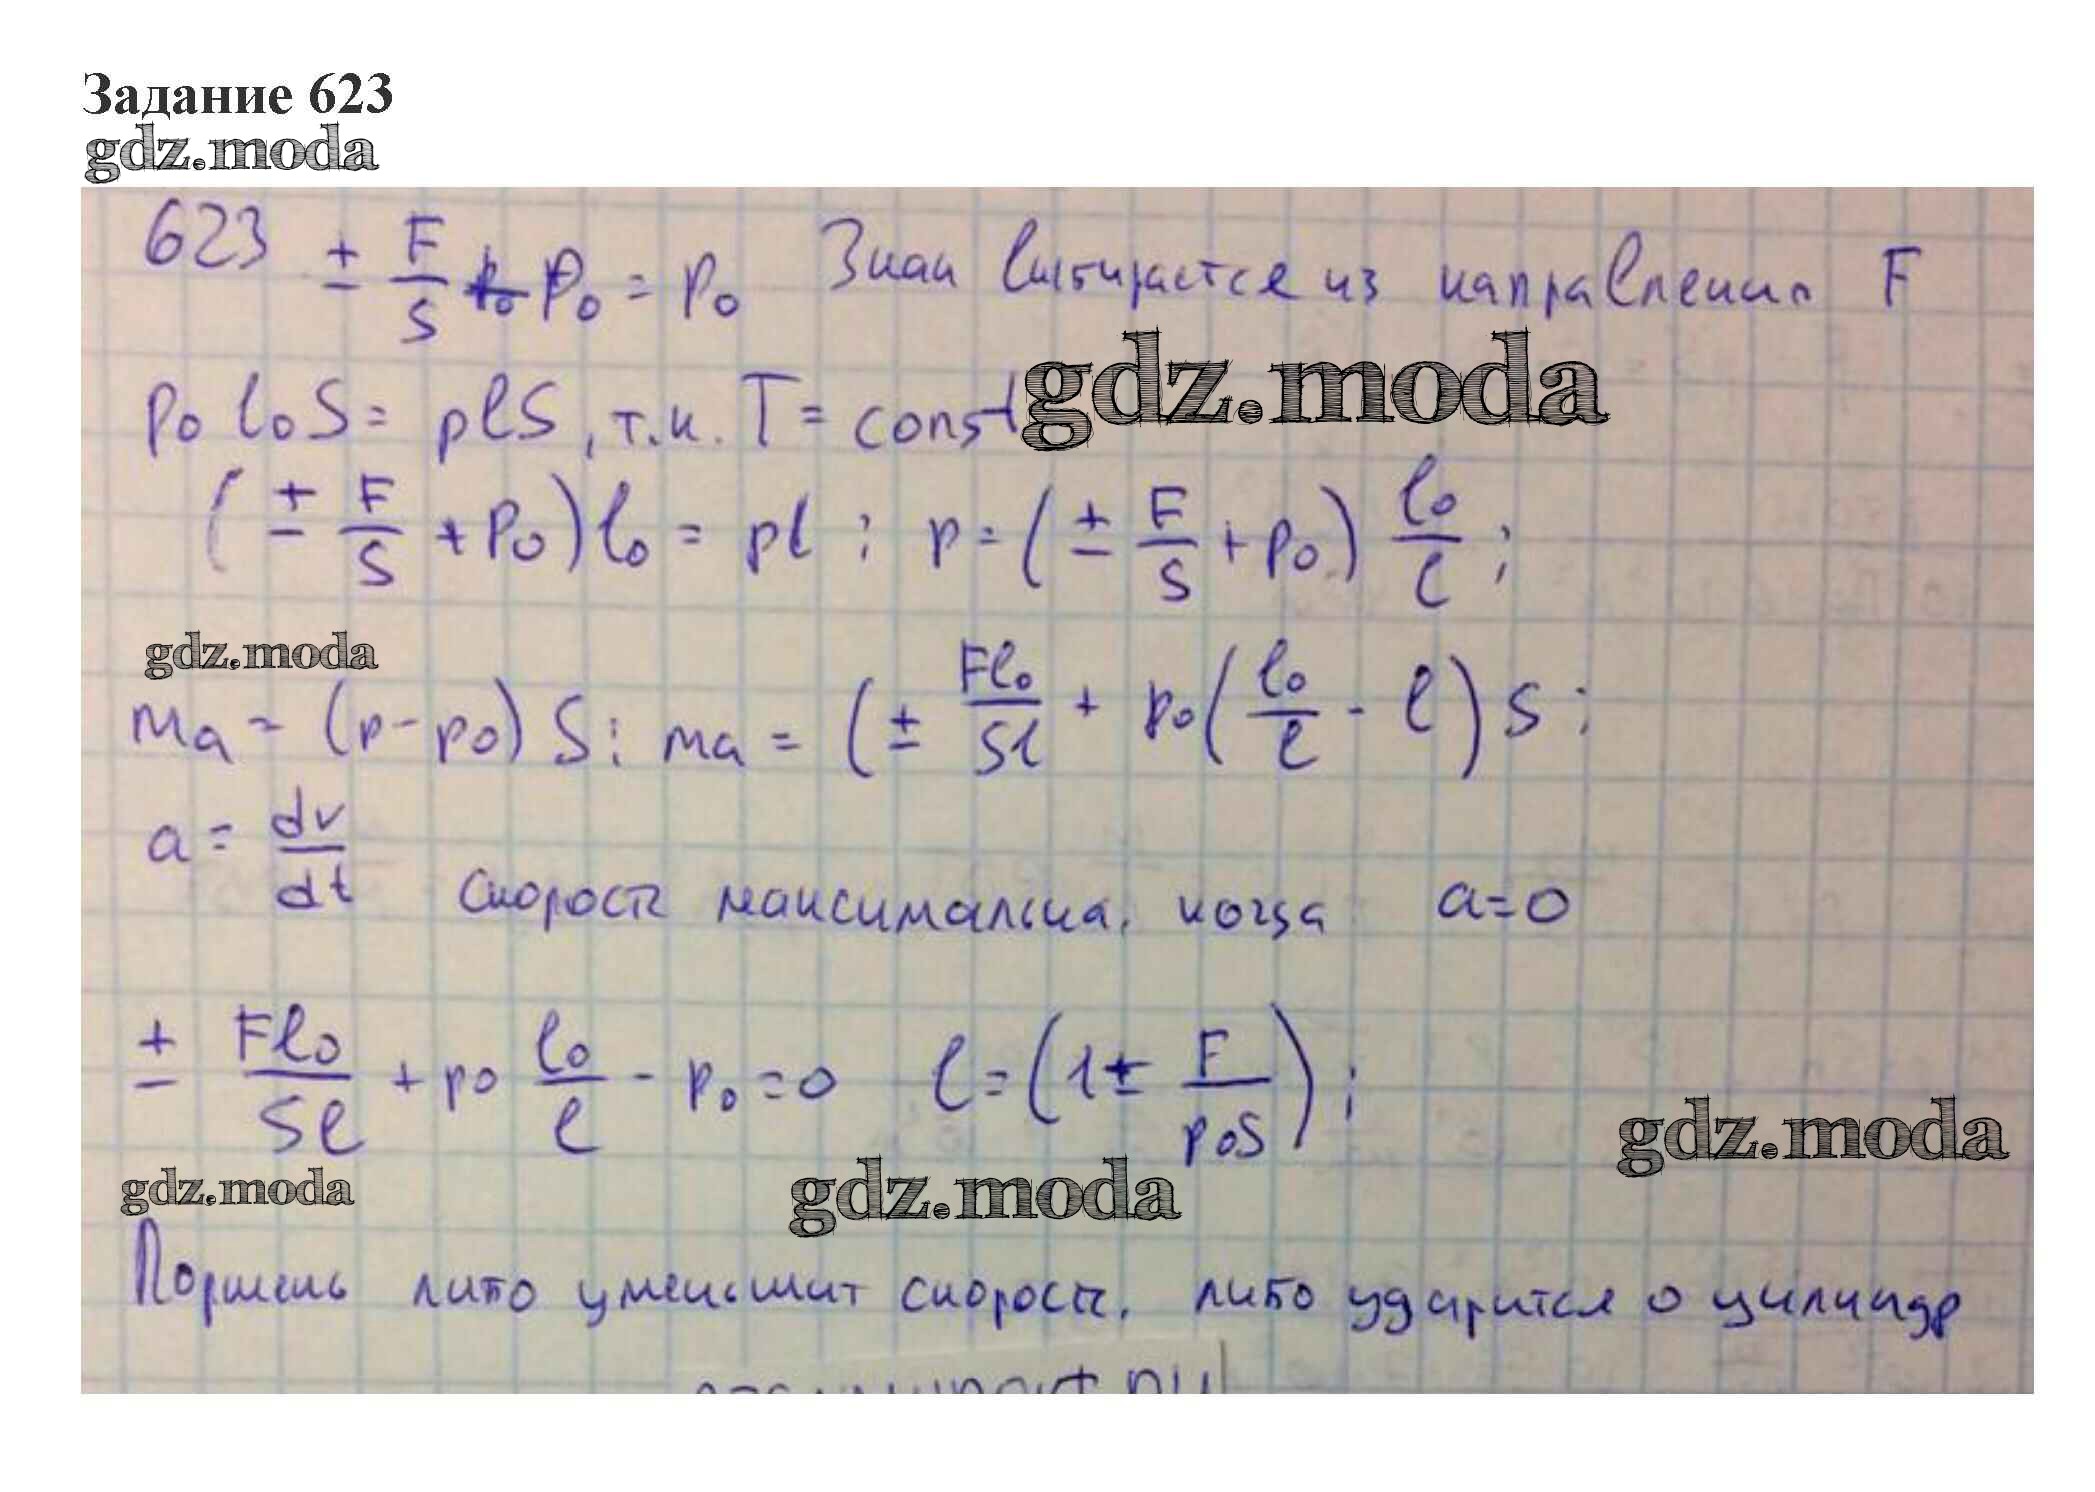 Задание 623
gdz.moda
623 ± F/S + p₀ = p₀ Знак выбирается из направления F
gdz.moda
p₀ l₀ S = p l S, т.к. T = const
(± F/S + p₀) l₀ = p l ; p = (± F/S + p₀) l₀/l ;
gdz.moda
ma = (p - p₀) S ; ma = (± Fl₀/Sl + p₀ (l₀/l - l) S ;
a = dv/dt Скорость максимальна, когда a = 0
± Fl₀/Sl + p₀ l₀/l - p₀ = 0 l = (1 ± F/p₀S) ;
gdz.moda
gdz.moda
gdz.moda
Поршень либо уменьшит скорость, либо ударится о цилиндр